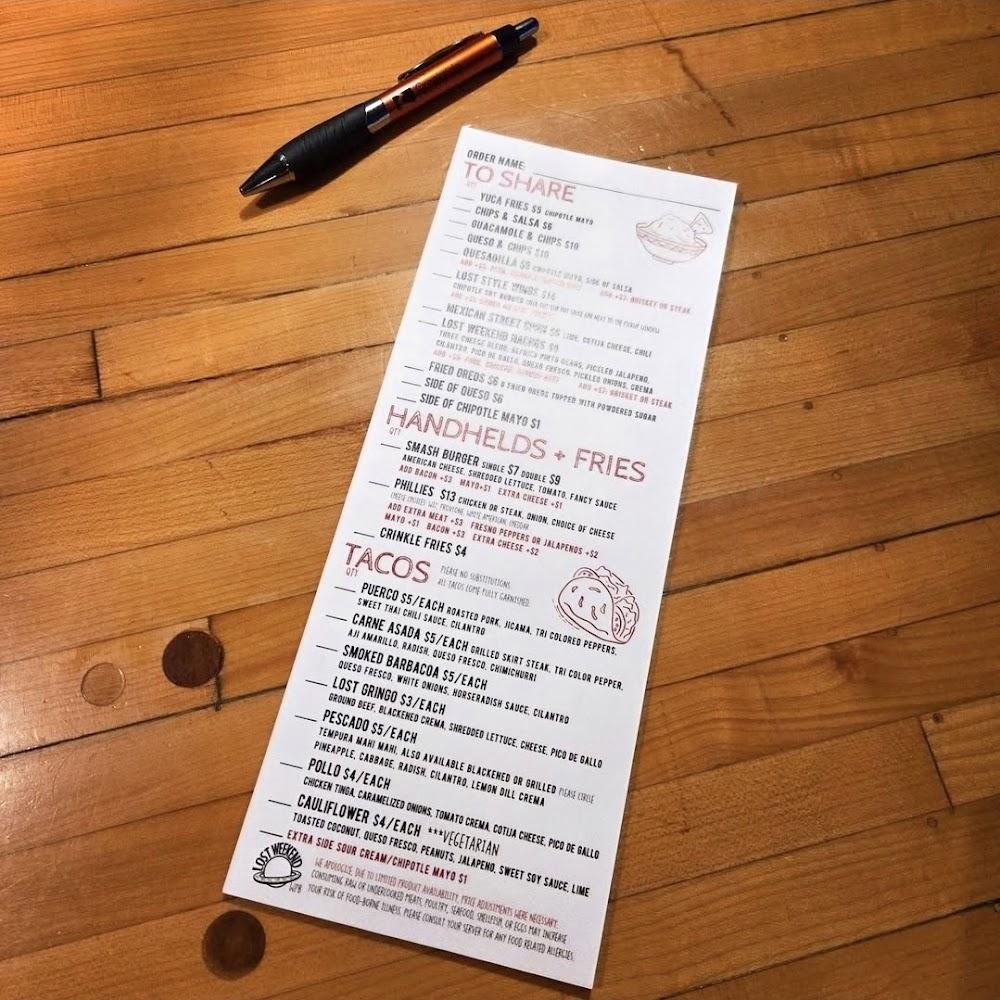 ORDER NAME:
TO SHARE
QTY
YUCA FRIES $5 CHIPOTLE MAYO
CHIPS & SALSA $6
GUACAMOLE & CHIPS $10
QUESO & CHIPS $10
QUESADILLA $8 CHIPOTLE MAYO, SIDE OF SALSA
ADD +$7: BRISKET OR STEAK
LOST STYLE WINGS
CHIPOTLE SOY
MEXICAN STREET CORN $6 LIME, COTIJA CHEESE, CHILI
LOST WEEKEND NACHOS
THREE CHEESE BLEND, REFRIED PINTO BEANS, PICKLED JALAPENO,
CILANTRO, PICO DE GALLO, QUESO FRESCO, PICKLED ONIONS, CREMA
ADD +$7: BRISKET OR STEAK
FRIED OREOS $6 6 FRIED OREOS TOPPED WITH POWDERED SUGAR
SIDE OF QUESO $6
SIDE OF CHIPOTLE MAYO $1
HANDHELDS + FRIES
QTY
SMASH BURGER SINGLE $7 DOUBLE $9
AMERICAN CHEESE, SHREDDED LETTUCE, TOMATO, FANCY SAUCE
ADD BACON +$3 MAYO+$1 EXTRA CHEESE +$1
PHILLIES $13 CHICKEN OR STEAK, ONION, CHOICE OF CHEESE
CHEESE CHOICES: WIZ, PROVOLONE, WHITE AMERICAN, CHEDDAR
ADD EXTRA MEAT +$3 FRESNO PEPPERS OR JALAPENOS +$2
MAYO +$1 BACON +$3 EXTRA CHEESE +$2
CRINKLE FRIES $4
TACOS PLEASE NO SUBSTITUTIONS.
QTY ALL TACOS COME FULLY GARNISHED.
PUERCO $5/EACH ROASTED PORK, JICAMA, TRI COLORED PEPPERS,
SWEET THAI CHILI SAUCE, CILANTRO
CARNE ASADA $5/EACH GRILLED SKIRT STEAK, TRI COLOR PEPPER,
AJI AMARILLO, RADISH, QUESO FRESCO, CHIMICHURRI
SMOKED BARBACOA $5/EACH
QUESO FRESCO, WHITE ONIONS, HORSERADISH SAUCE, CILANTRO
LOST GRINGO $3/EACH
GROUND BEEF, BLACKENED CREMA, SHREDDED LETTUCE, CHEESE, PICO DE GALLO
PESCADO $5/EACH
TEMPURA MAHI MAHI, ALSO AVAILABLE BLACKENED OR GRILLED PLEASE CIRCLE
PINEAPPLE, CABBAGE, RADISH, CILANTRO, LEMON DILL CREMA
POLLO $4/EACH
CHICKEN TINGA, CARAMELIZED ONIONS, TOMATO CREMA, COTIJA CHEESE, PICO DE GALLO
CAULIFLOWER $4/EACH ***VEGETARIAN
TOASTED COCONUT, QUESO FRESCO, PEANUTS, JALAPENO, SWEET SOY SAUCE, LIME
EXTRA SIDE SOUR CREAM/CHIPOTLE MAYO $1
LOST WEEKEND
WPB
WE APOLOGIZE, DUE TO LIMITED PRODUCT AVAILABILITY, PRICE ADJUSTMENTS WERE NECESSARY.
CONSUMING RAW OR UNDERCOOKED MEATS, POULTRY, SEAFOOD, SHELLFISH, OR EGGS MAY INCREASE
YOUR RISK OF FOOD-BORNE ILLNESS, PLEASE CONSULT YOUR SERVER FOR ANY FOOD RELATED ALLERGIES.